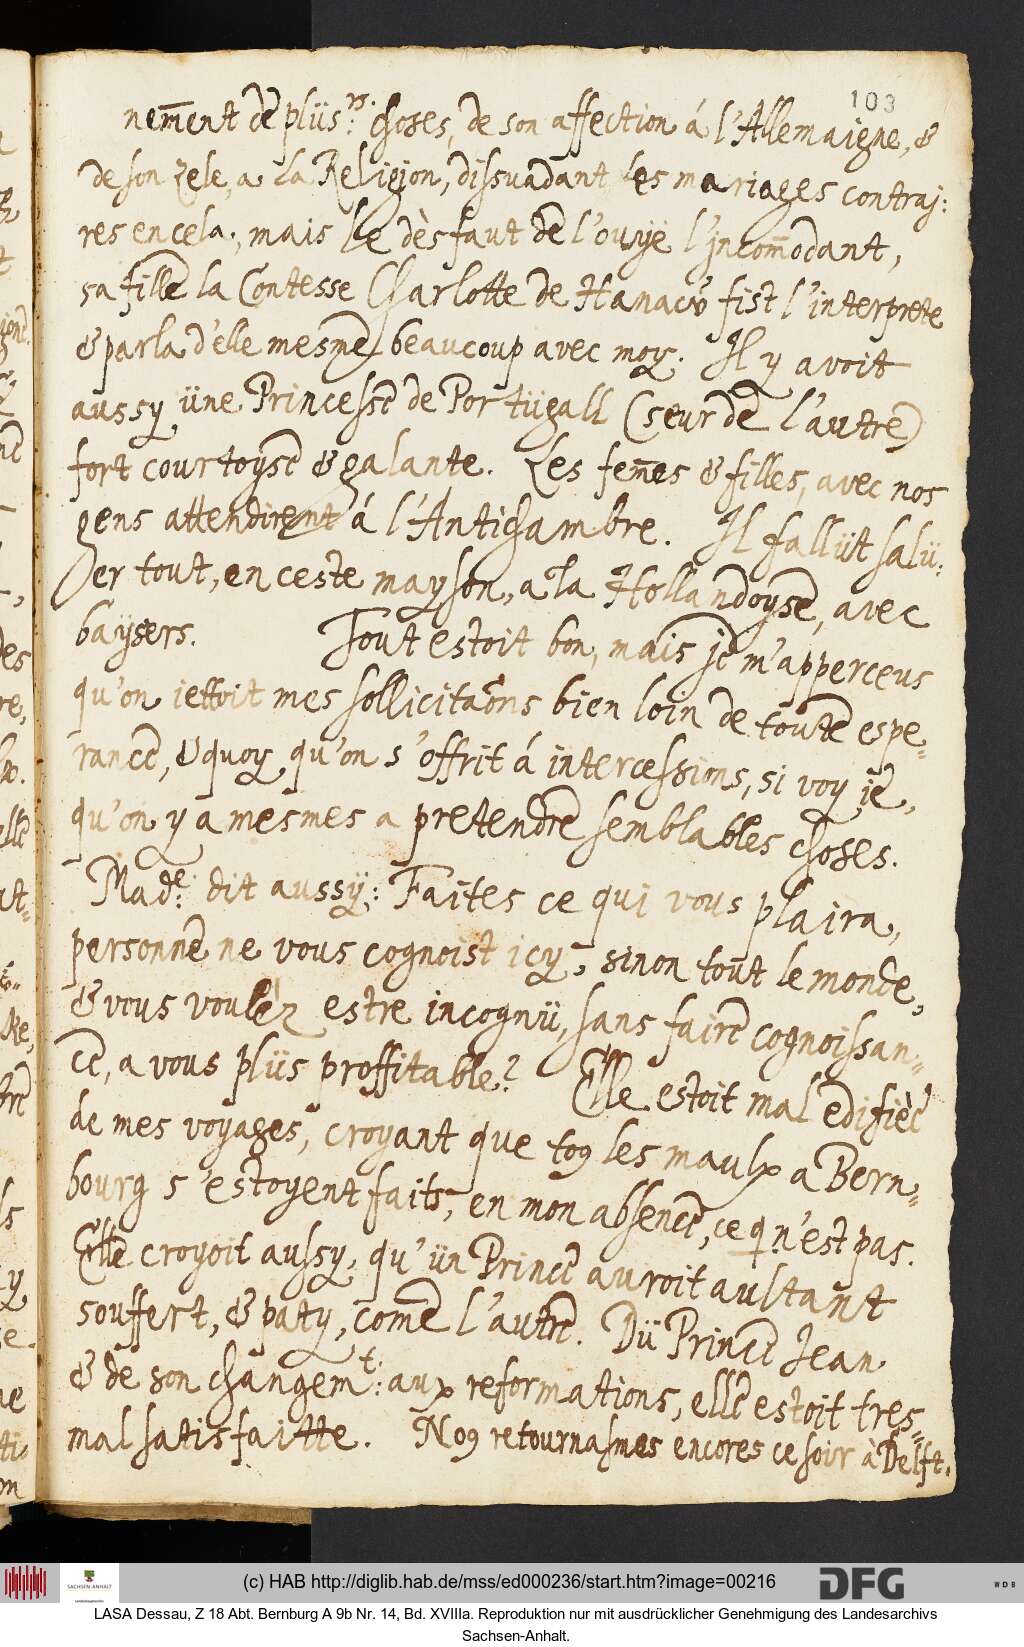 103
nem̄ent de plüs:rs. choses, de son affection á l'Allemaigne, &
de son Zele, a la Religion, dissuadant les mariages contraj:
res en cela, mais le dèsfaut de l'ouÿe l'jncom̄odant,
sa fille la Contesse Charlotte de Hanaw fist l'interprete
& parla d'elle mesme beaucoup avec moy. Il y avoit
aussy üne Princesse de Portügall (seur de l'autre)
fort courtoyse & galante. Les fem̄es & filles, avec nos
gens attendirent á l'Antichambre. Il fallüt salü:
er tout, en ceste mayson, a la Hollandoyse, avec
baysers. Tout estoit bon, mais je m'apperceus
qu'on jettoit mes sollicita͠ons bien loin de toute espe=
rance, & quoy qu'on s'offrit á intercessions, si voy je,
qu'on y a mesmes a pretendre semblables choses.
Made: dit aussÿ: Faites ce qui vous plaira,
personne ne vous cognoist icy, sinon tout le monde,
& vous voulez estre incognü, sans faire cognoissan=
ce, a vous plüs proffitable? Elle estoit mal edifièe
de mes voyages, croyant que to9 les maulx a Bern=
bourg s'estoyent faits, en mon absence, ce q n'est pas.
Elle croyoit aussy, qu'ün Prince auroit aultant
souffert, & paty, com̄e l'autre. Dü Prince Jean
& de son changemt: aux reformations, elle estoit tres=
mal satisfaitte. No9 retournasmes encores ce soir à Delft.
(c) HAB http://diglib.hab.de/mss/ed000236/start.htm?image=00216
SACHSEN-ANHALT
DFG
WDB
LASA Dessau, Z 18 Abt. Bernburg A 9b Nr. 14, Bd. XVIIIa. Reproduktion nur mit ausdrücklicher Genehmigung des Landesarchivs
Sachsen-Anhalt.